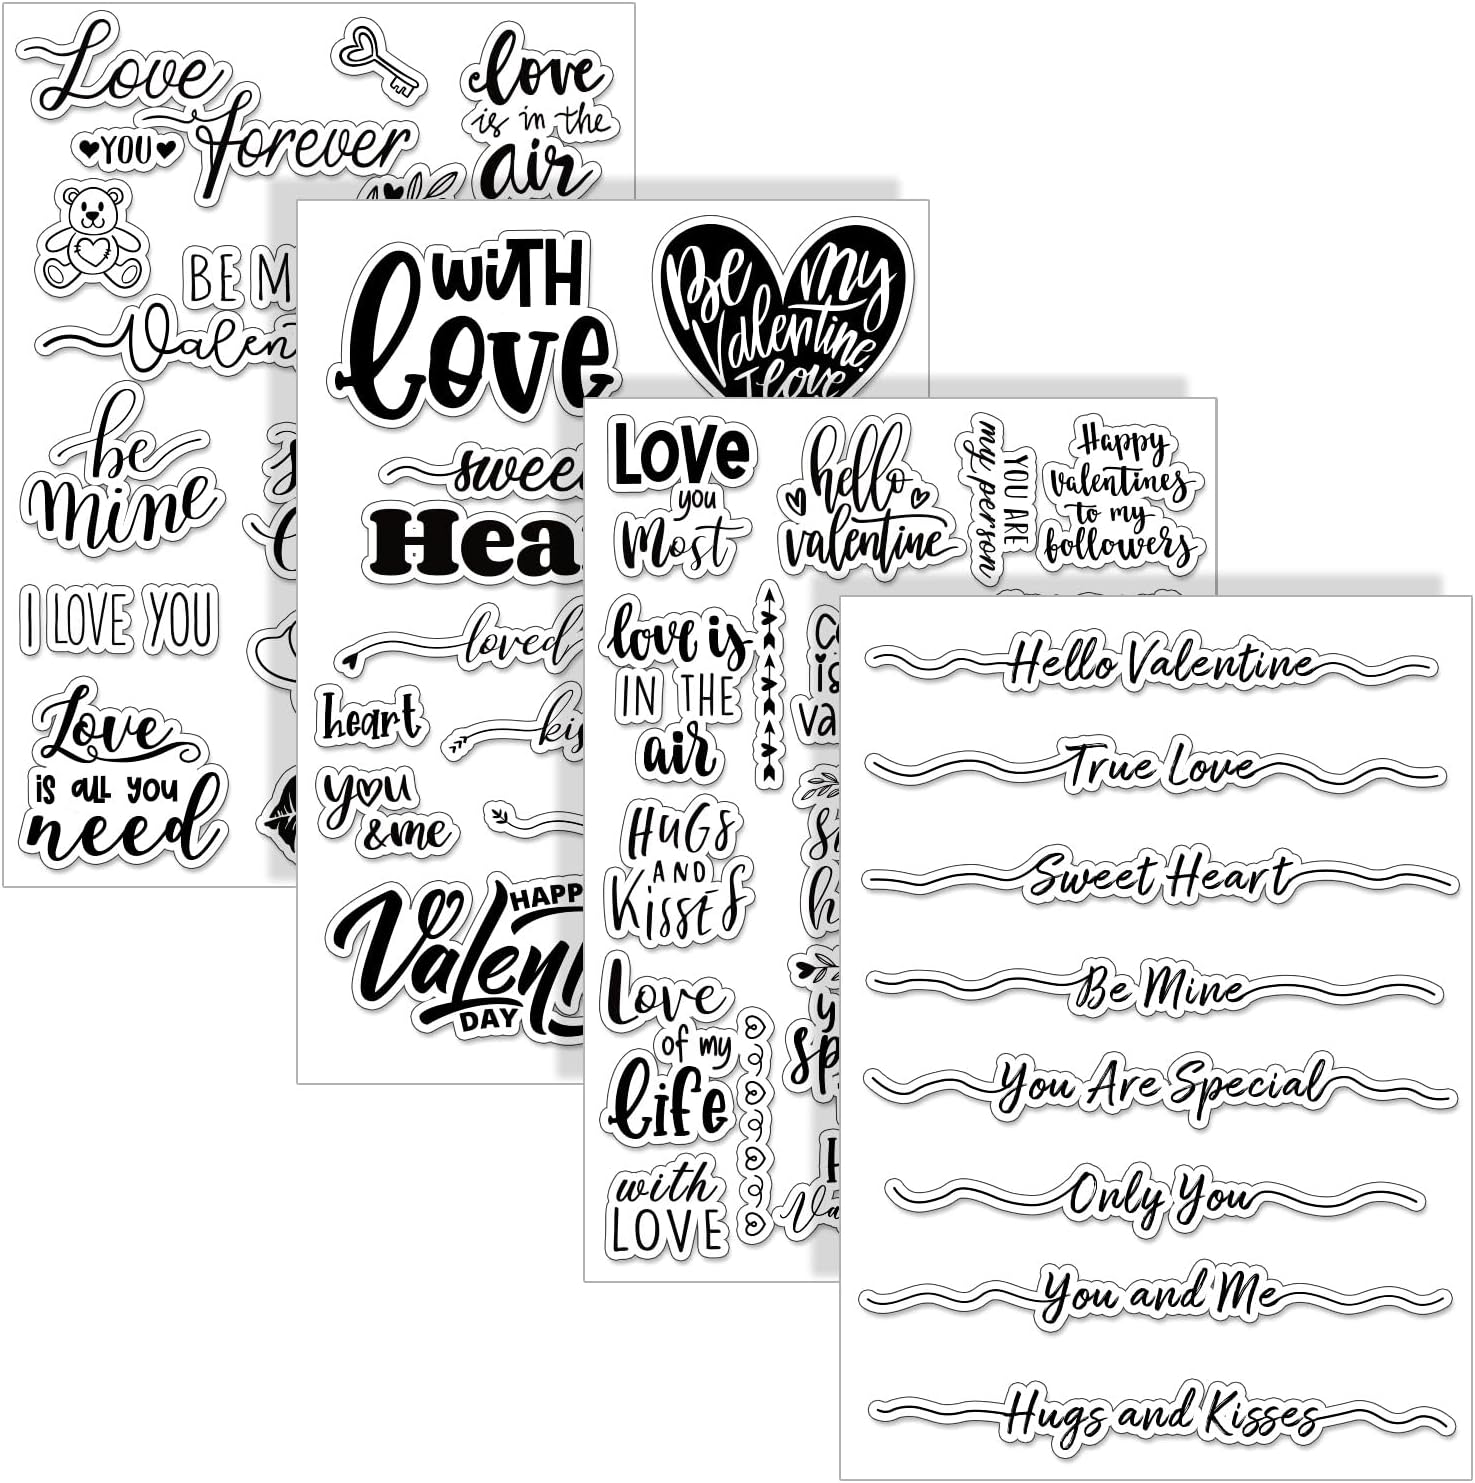 Love
forever
♥YOU♥
love
is in the
air
BE M
Valen
be
mine
I LOVE YOU
Love
is all you
need
with
love
Be my
Valentine.
I love
swee
Hea
loved
heart
kis
you
&me
HAPP
Valen
DAY
Love
you
Most
hello
valentine
YOU ARE
my person
Happy
valentines
to my
followers
love is
IN THE
air
HUGS
AND
KISSES
Love
of my
life
with
LOVE
is
va
Va
Hello Valentine
True Love
Sweet Heart
Be Mine
You Are Special
Only You
You and Me
Hugs and Kisses